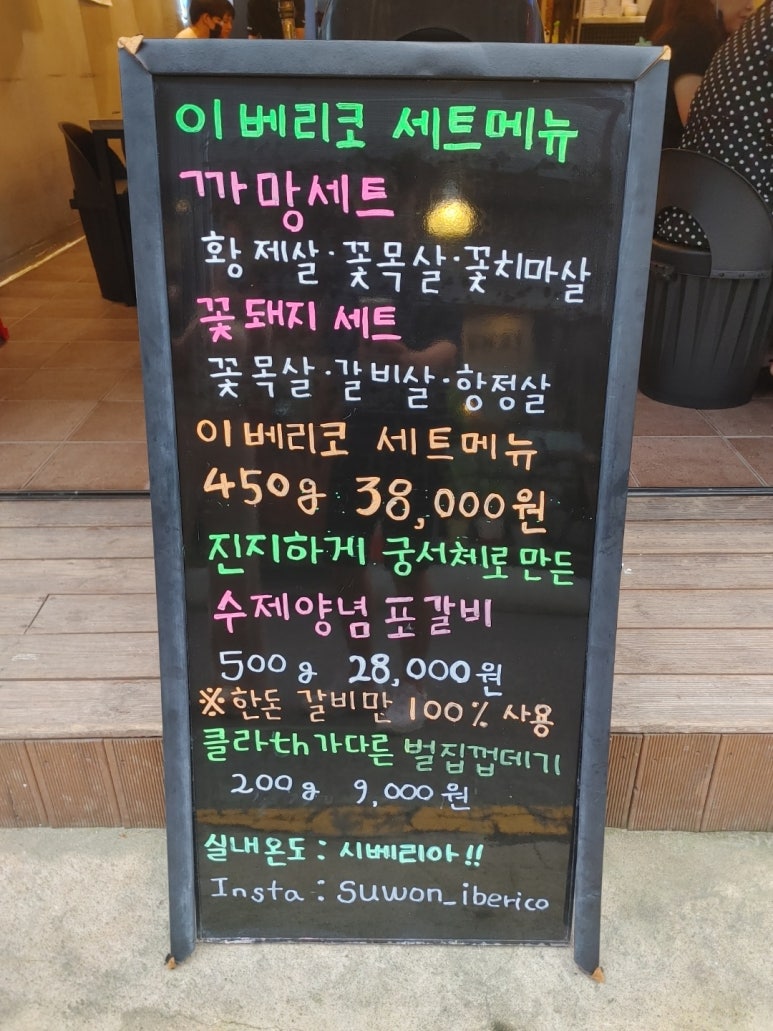 이베리코 세트메뉴
까망세트
황제살·꽃목살·꽃치마살
꽃돼지 세트
꽃목살·갈비살·항정살
이베리코 세트메뉴
450g 38,000원
진지하게 궁서체로 만든
수제양념 포갈비
500g 28,000원
※한돈 갈비만 100% 사용
클라th가다른 벌집껍데기
200g 9,000원
실내온도 : 시베리아!!
Insta : suwon_iberico